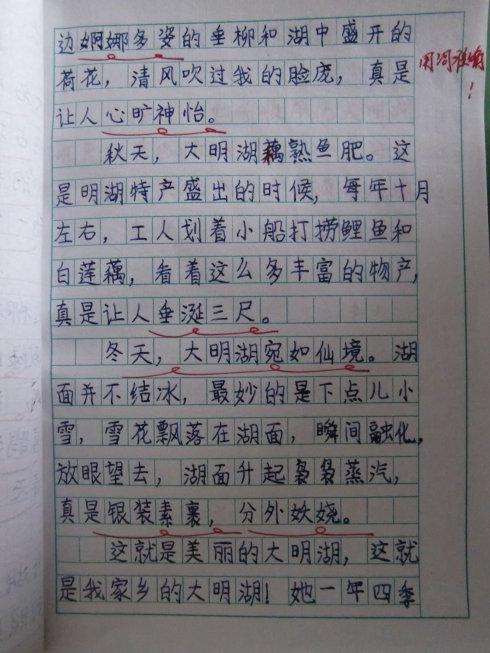 边婀娜多姿的垂柳和湖中盛开的
荷花，清风吹过我的脸庞，真是
让人心旷神怡。
用词准确！
秋天，大明湖藕熟鱼肥。这
是明湖特产盛出的时候，每年十月
左右，工人划着小船打捞鲤鱼和
白莲藕，看着这么多丰富的物产，
真是让人垂涎三尺。
冬天，大明湖宛如仙境。湖
面并不结冰，最妙的是下点儿小
雪，雪花飘落在湖面，瞬间融化，
放眼望去，湖面升起袅袅蒸汽，
真是银装素裹，分外妖娆。
这就是美丽的大明湖，这就
是我家乡的大明湖！她一年四季